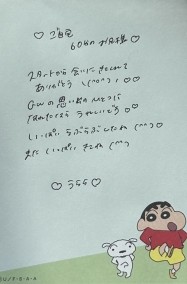 ♡ ご自宅
60分のお日様 ♡
スタートから会いにきてくれて
ありがとう (^^) ♡
GWの思い出のひとつに
なれたなら うれしいです♡♡
いっぱいらぶらぶしたね (^^)
また いっぱい きてね (^^)
♡ うらら ♡